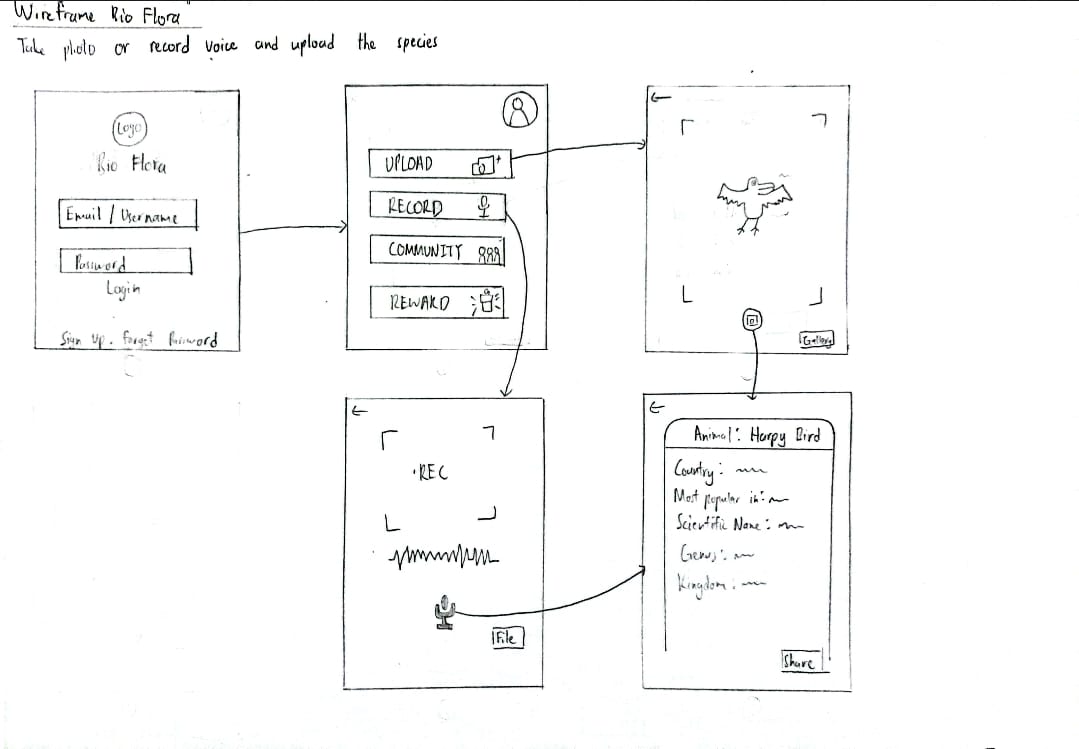 Wireframe Rio Flora"
Take photo or record voice and upload the species
Logo
Rio Flora
Email / Username
Password
Login
Sign Up. Forget Password
UPLOAD
RECORD
COMMUNITY
REWARD
Gallery
·REC
File
Animal: Harpy Bird
Country:
Most popular in:
Scientific Name:
Genus:
Kingdom:
Share